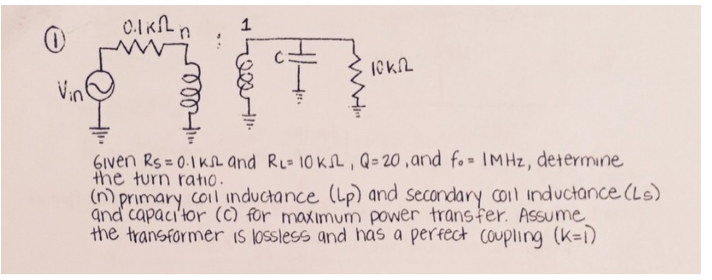 ①
0.1KΩ n : 1
Vin
C
10KΩ
Given Rs = 0.1KΩ and RL = 10KΩ, Q=20, and f₀ = 1MHz, determine
the turn ratio.
(n) primary coil inductance (Lp) and secondary coil inductance (Ls)
and capacitor (C) for maximum power transfer. Assume
the transformer is lossless and has a perfect coupling (K=1)